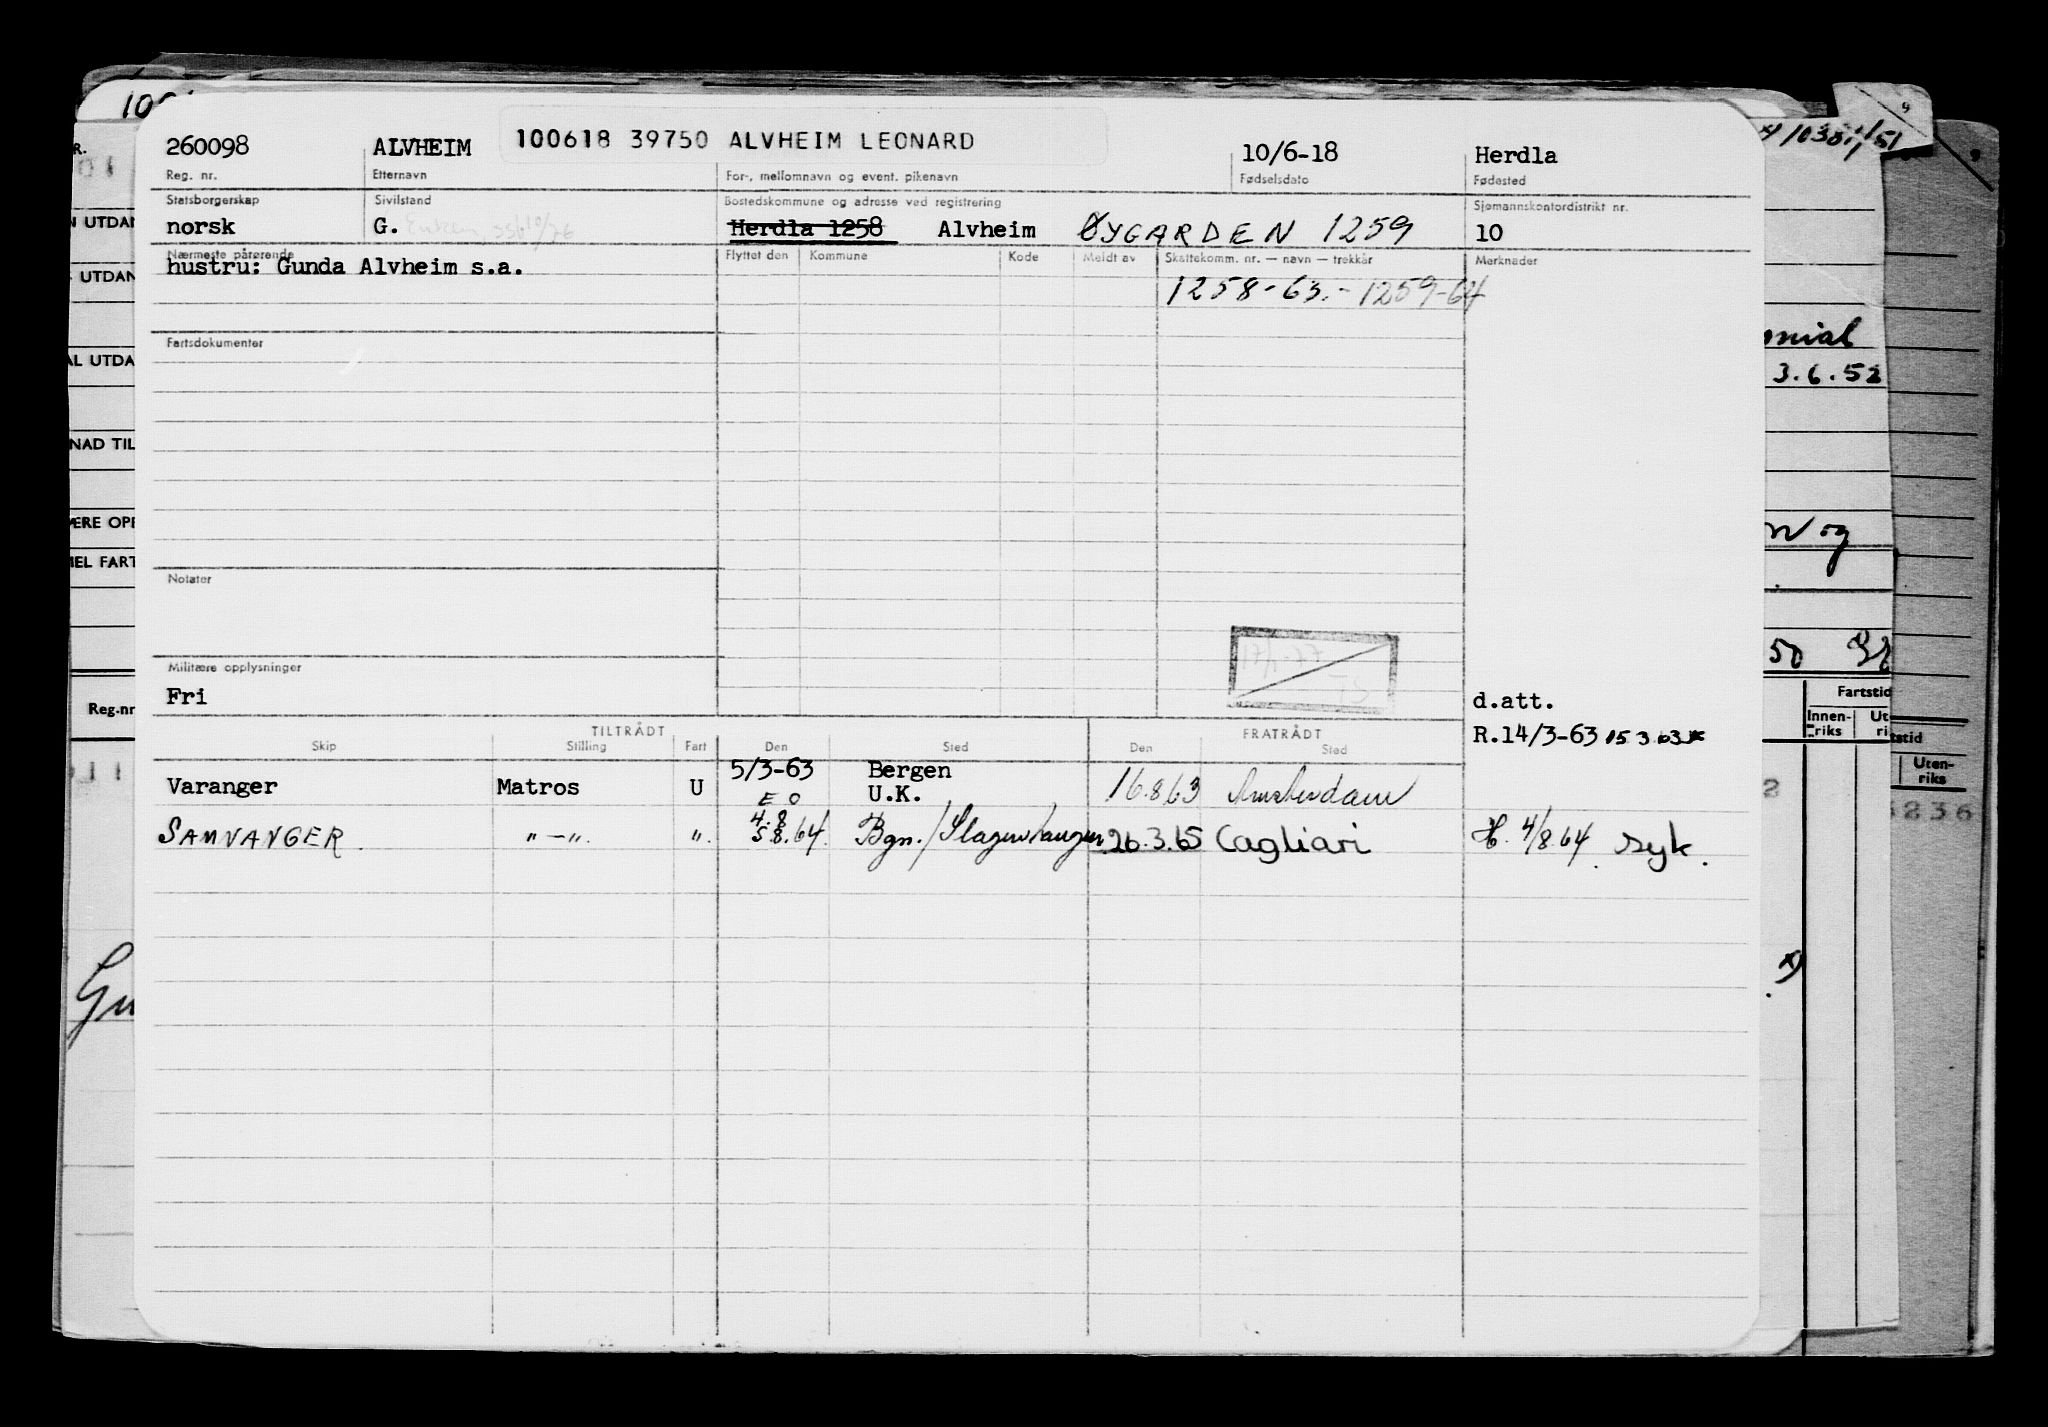 260098 ALVHEIM 100618 39750 ALVHEIM LEONARD 10/6-18 Herdla
Reg. nr. Etternavn For-, mellomnavn og event. pikenavn Fødselsdato Fødested
Statsborgerskap Sivilstand Bostedskommune og adresse ved registrering Sjømannskontordistrikt nr.
norsk G. Herdla 1258 Alvheim ØYGARDEN 1259 10
Nærmeste pårørende Flyttet den Kommune Kode Meldt av Skattekomm. nr. — navn — trekkår Merknader
hustru: Gunda Alvheim s.a.
1258-63.- 1259-64
Fartsdokumenter
Notater
Militære opplysninger
Fri d.att.
R.14/3-63 15 3 63
TILTRÅDT FRATRÅDT
Skip Stilling Fart Den Sted Den Sted
Varanger Matros U 5/3-63 Bergen 16.8.63 Amsterdam
E O U.K.
SAMNANGER. "-". ". 4.8 5.8.64. Bgn./Slagenstangen 26.3.65 Cagliari H. 4/8.64. syk.
N UTDAN
UTDAN
AL UTDA
NAD TIL
ÆRE OPP
MEL FART
Reg.nr
3.6.52
og
50
Fartstid
Innen-
riks
Uten-
riks